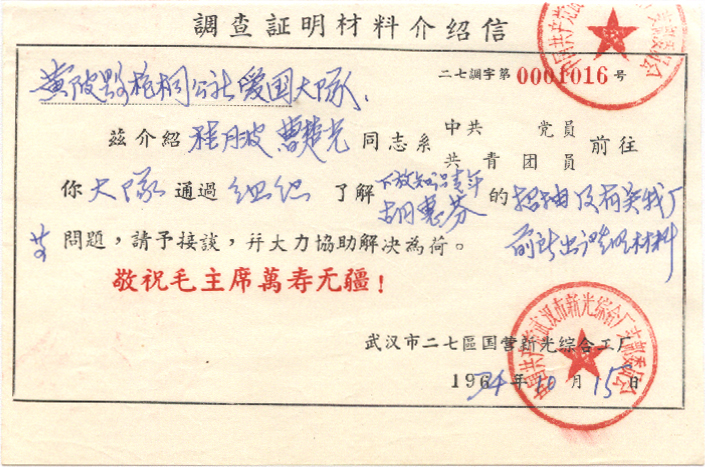 調查証明材料介绍信
黄陂县梧桐公社爱国大隊,
二七調字第 0001016 号
茲介紹 程月波 曹楚光 同志系 中共 党員 前往
共青团員
你 大隊 通過 组织 了解 下放知识青年 胡惠芬 的 招抽及有关我厂
等 問題，請予接談，幷大力協助解决為荷。 前站出证明材料
敬祝毛主席萬寿无疆！
武汉市二七區国营新光綜合工厂
196 74 年 10 月 15 日